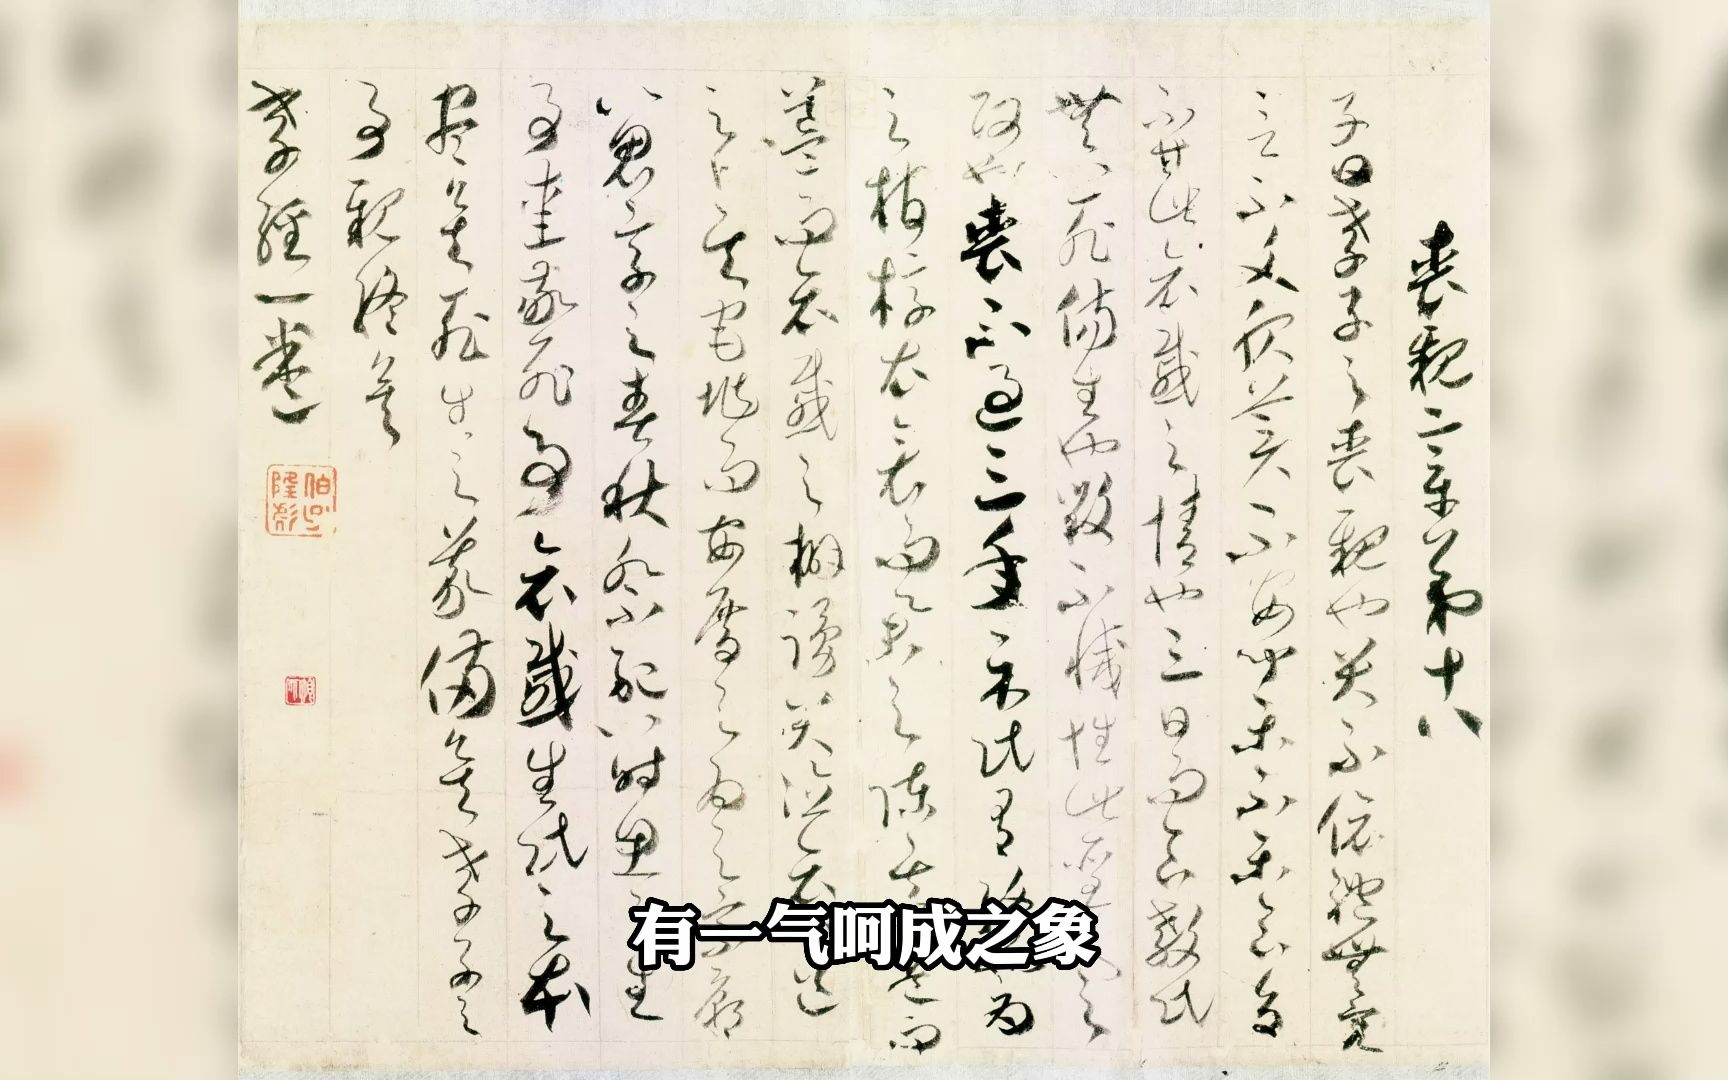 喪親章第十八
子曰孝子之喪親也哭不偯禮無容
言不文服美不安聞樂不樂食旨
不甘此哀慼之情也三日而食教民
無以死傷生也毀不滅性此聖人之
政也喪不過三年示民有終也為
之棺椁衣衾而舉之陳其而
而哀慼之擗踊哭泣哀送
之卜其宅兆而安厝之為之宗廟
以鬼享之春秋祭祀以時思之生
事愛敬死事哀慼生民之本
盡矣死生之義備矣孝子之
事親終矣
孝經一卷
有一气呵成之象